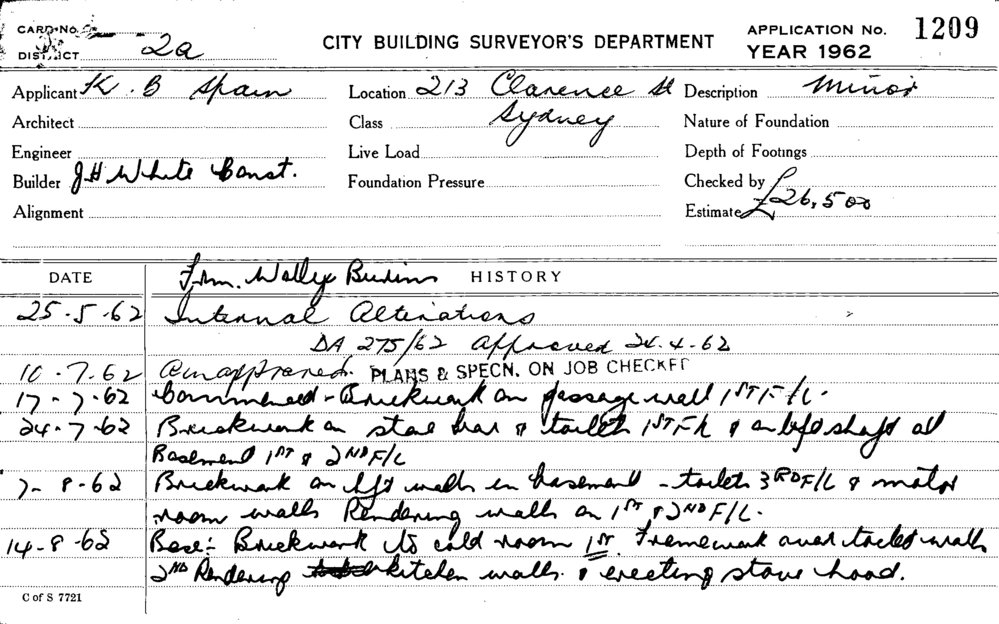 CARD No.
DISTRICT 2a
CITY BUILDING SURVEYOR'S DEPARTMENT
APPLICATION No. 1209
YEAR 1962
Applicant K. B Spain
Location 213 Clarence St
Sydney
Description Minor
Architect
Class
Nature of Foundation
Engineer
Live Load
Depth of Footings
Builder J H White Const.
Foundation Pressure
Checked by
Alignment
Estimate £26,500
DATE
HISTORY
25-5-62 Internal Alterations
DA 275/62 approved 24.4.62
10-7-62 PLANS & SPECN. ON JOB CHECKED
17-7-62 Commenced - Brickwork on passage wall 1ST F/L.
24-7-62 Brickwork on stove & toilets 1ST F/L & on shaft at
Basement 1ST & 2ND F/L
7-8-62 Brickwork on lift walls in basement - toilets 3RD F/L & motor
room walls Rendering walls on 1ST & 2ND F/L.
14-8-62 Base:- Brickwork to cold room 1ST. Framework over toilet walls
2ND Rendering kitchen walls & erecting stove hood.
C of S 7721